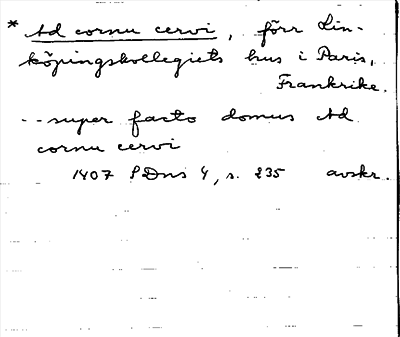 * Ad cornu cervi, förr Lin-
köpingskollegiets hus i Paris,
Frankrike.
-- super facto domus Ad
cornu cervi
1407 SDns 4, s. 235 avskr.